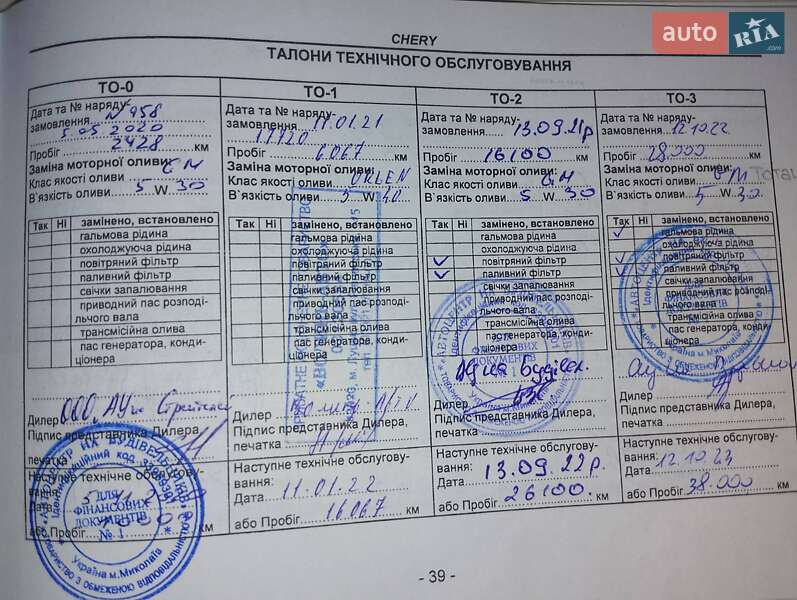 auto RIA.com
CHERY
ТАЛОНИ ТЕХНІЧНОГО ОБСЛУГОВУВАННЯ
ТО-0
Дата та № наряду-
замовлення... N 958
5.05.2020
Пробіг 2428 км
Заміна моторної оливи: GM
Клас якості оливи
В`язкість оливи..5 W 30
Так Ні замінено, встановлено
гальмова рідина
охолоджуюча рідина
повітряний фільтр
паливний фільтр
свічки запалювання
приводний пас розподі-
льчого вала
трансмісійна олива
пас генератора, конди-
ціонера
Дилер ООО,
Підпис представника Дилера,
печатка
Наступне технічне обслугову-
вання:
Дата
або Пробіг км
ТО-1
Дата та № наряду-
замовлення 11.01.21
11120
Пробіг 6067 км
Заміна моторної оливи:
Клас якості оливи ORLEN
В`язкість оливи 5 W 40
Так Ні замінено, встановлено
гальмова рідина
охолоджуюча рідина
повітряний фільтр
паливний фільтр
свічки запалювання
приводний пас розподі-
льчого вала
трансмісійна олива
пас генератора, конди-
ціонера
Дилер
Підпис представника Дилера,
печатка
Наступне технічне обслугову-
вання:
Дата 11.01.22
або Пробіг 16067 км
ТО-2
Дата та № наряду-
замовлення... 13.09.21р
Пробіг 16100 км
Заміна моторної оливи:
Клас якості оливи GM
В`язкість оливи 5 W 30
Так Ні замінено, встановлено
гальмова рідина
охолоджуюча рідина
повітряний фільтр
паливний фільтр
свічки запалювання
приводний пас розподі-
льчого вала
трансмісійна олива
пас генератора, конди-
ціонера
Дилер
Підпис представника Дилера,
печатка
Наступне технічне обслугову-
вання: 13.09.22р.
Дата
або Пробіг 26100 км
ТО-3
Дата та № наряду-
замовлення 12.10.22
Пробіг 28.000 км
Заміна моторної оливи:
Клас якості оливи GM
В`язкість оливи 5 W 30
Так Ні замінено, встановлено
гальмова рідина
охолоджуюча рідина
повітряний фільтр
паливний фільтр
свічки запалювання
приводний пас розподі-
льчого вала
трансмісійна олива
пас генератора, конди-
ціонера
Дилер
Підпис представника Дилера,
печатка
Наступне технічне обслугову-
вання: 12.10.23
Дата
або Пробіг 38.000 км
ДЛЯ
ФІНАНСОВИХ
ДОКУМЕНТІВ
№ 1
Україна м.Миколаїв
ТОВАРИСТВО З ОБМЕЖЕНОЮ ВІДПОВІДАЛЬНІСТЮ
- 39 -